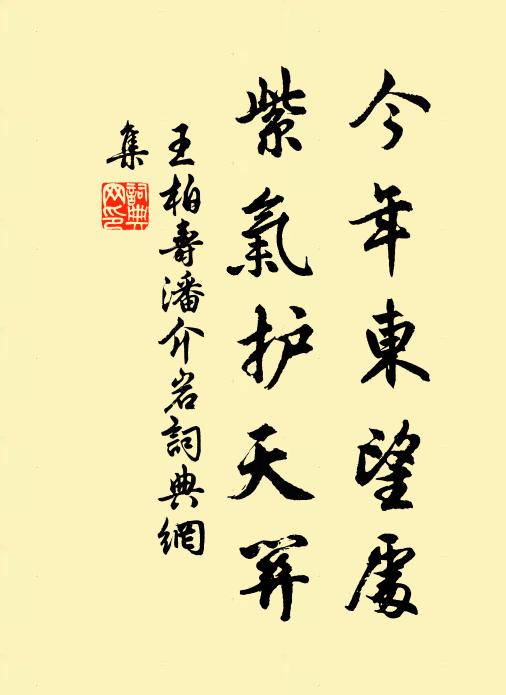 今年東望處
紫氣护天關
王柏壽潘介岩詞典網
集
詞典
网印